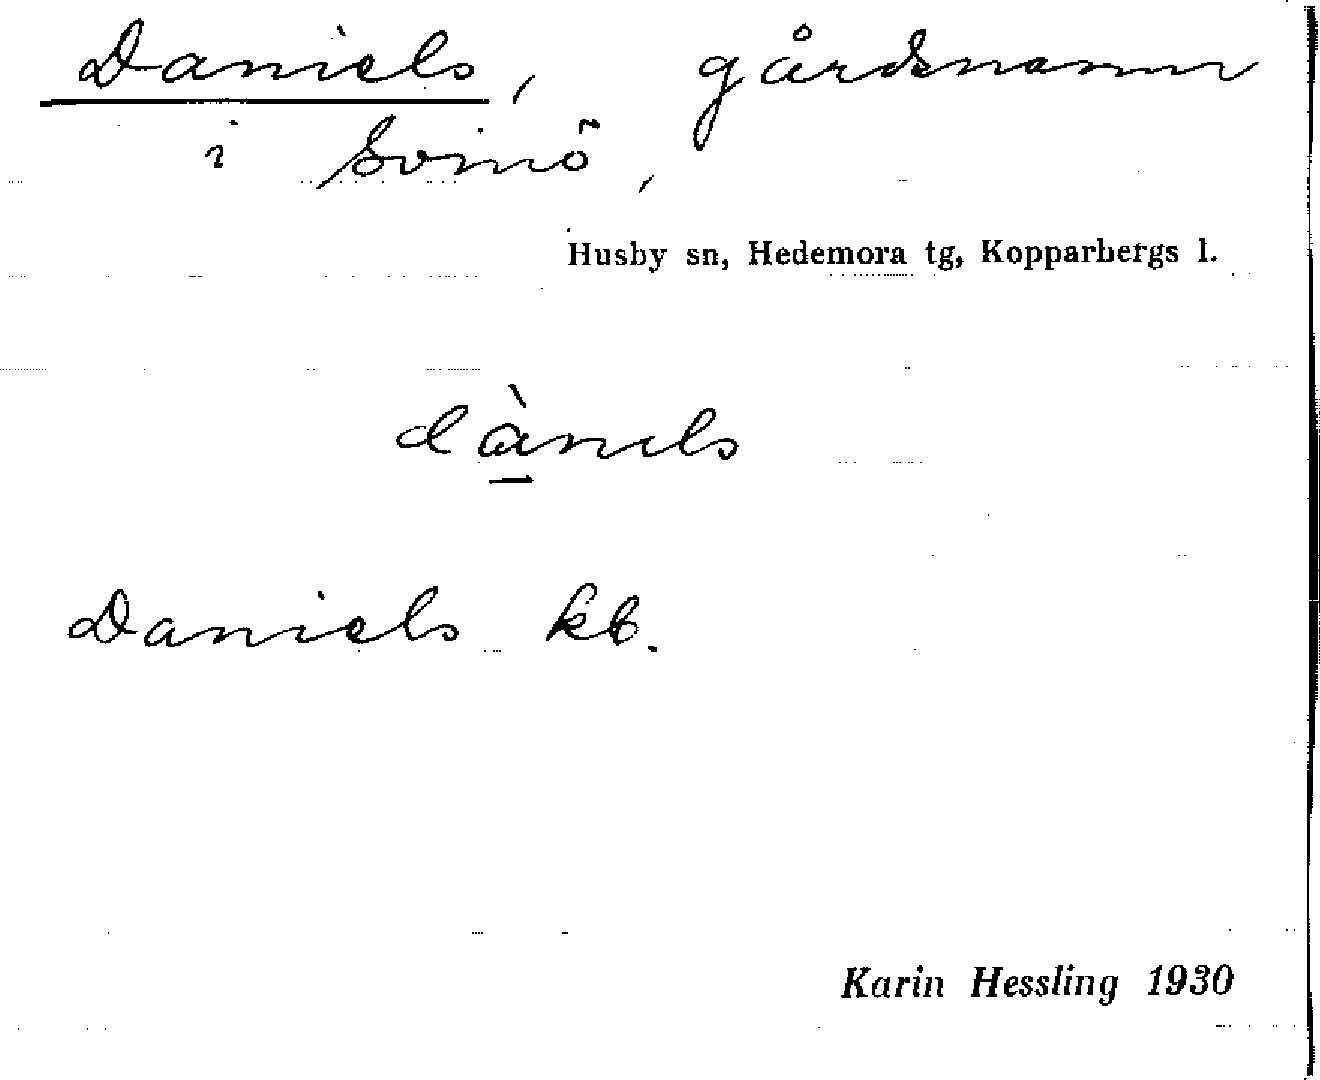 Daniels, gårdsnamn
i Svinö,
Husby sn, Hedemora tg, Kopparbergs l.
dà̱nıls
Daniels kb.
Karin Hessling 1930